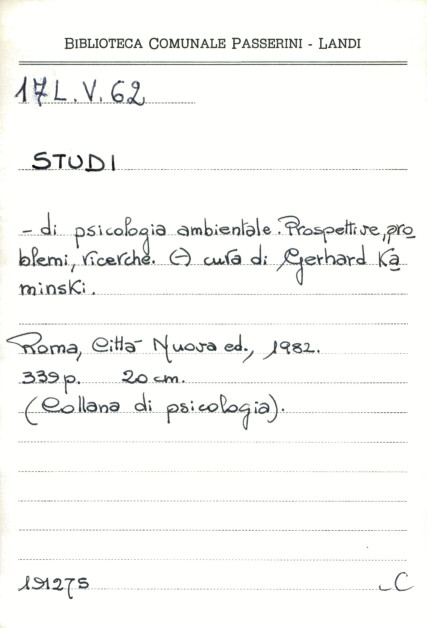 BIBLIOTECA COMUNALE PASSERINI - LANDI
17 L. V. 62
STUDI
- di psicologia ambientale. Prospettive, pro
blemi, ricerche. (-) cura di Gerhard Ka
minski.
Roma, Città Nuova ed., 1982.
339 p. 20 cm.
(Collana di psicologia).
191275
C